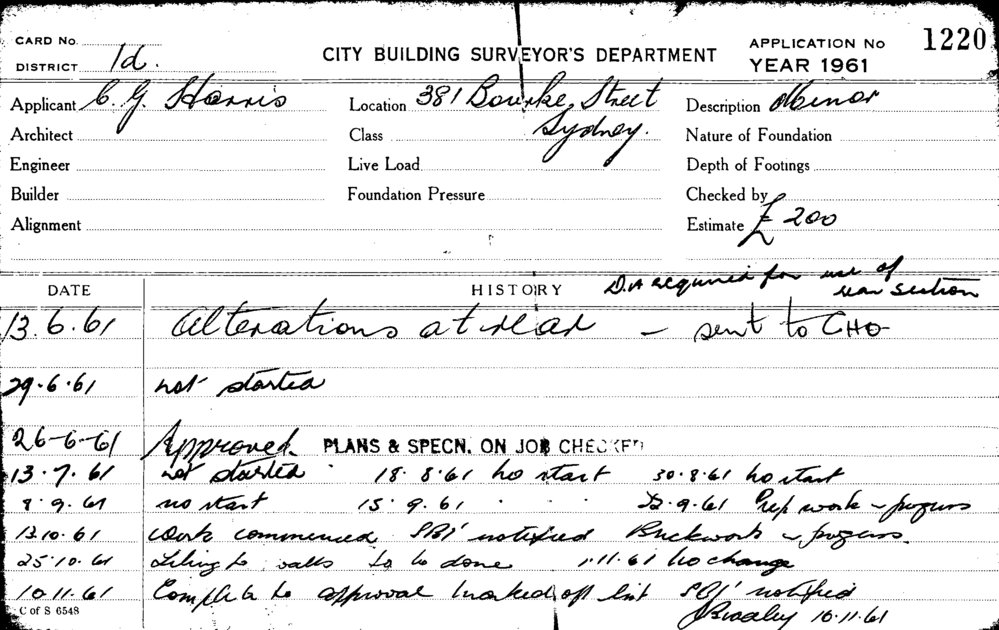 CARD No.
DISTRICT 1d.
CITY BUILDING SURVEYOR'S DEPARTMENT
APPLICATION No 1220
YEAR 1961
Applicant C. G. Harris Location 381 Bourke Street Description Minor
Sydney.
Architect Class Nature of Foundation
Engineer Live Load Depth of Footings
Builder Foundation Pressure Checked by
Alignment Estimate £ 200
D.A required for use of
rear section
DATE HISTORY
13.6.61 Alterations at rear - sent to CHO
29.6.61 not started
26-6-61 Approved. PLANS & SPECN. ON JOB CHECKED
13.7.61 not started 18.8.61 no start 30.8.61 no start
8.9.61 no start 15.9.61 . . . 22.9.61 Prep work - progress
13.10.61 Work commenced notified Brickwork - progress.
25.10.61 Tiling to walls to be done 1.11.61 no change
10.11.61 Complete to approval marked off list notified
10.11.61
C of S 6548